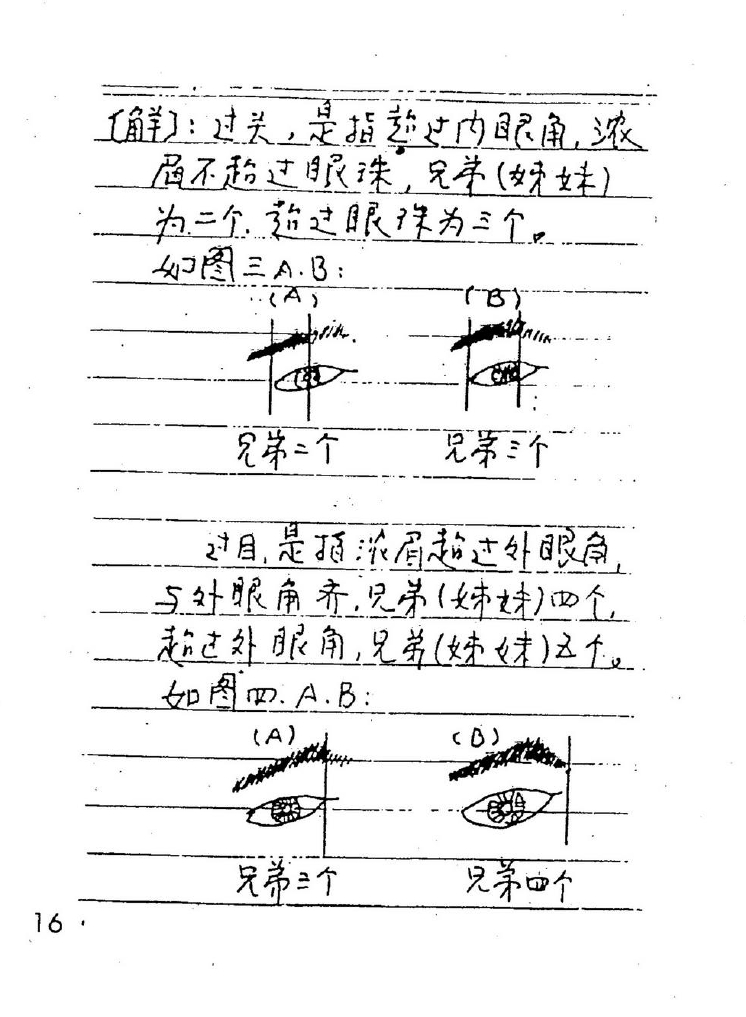 〔解〕：过头，是指超过内眼角，浓
眉不超过眼珠，兄弟（姊妹）
为二个，超过眼珠为三个。
如图三A.B：
（A） （B）
兄弟二个 兄弟三个
过目，是指浓眉超过外眼角，
与外眼角齐，兄弟（姊妹）四个，
超过外眼角，兄弟（姊妹）五个。
如图四.A.B：
（A） （B）
兄弟三个 兄弟四个
16